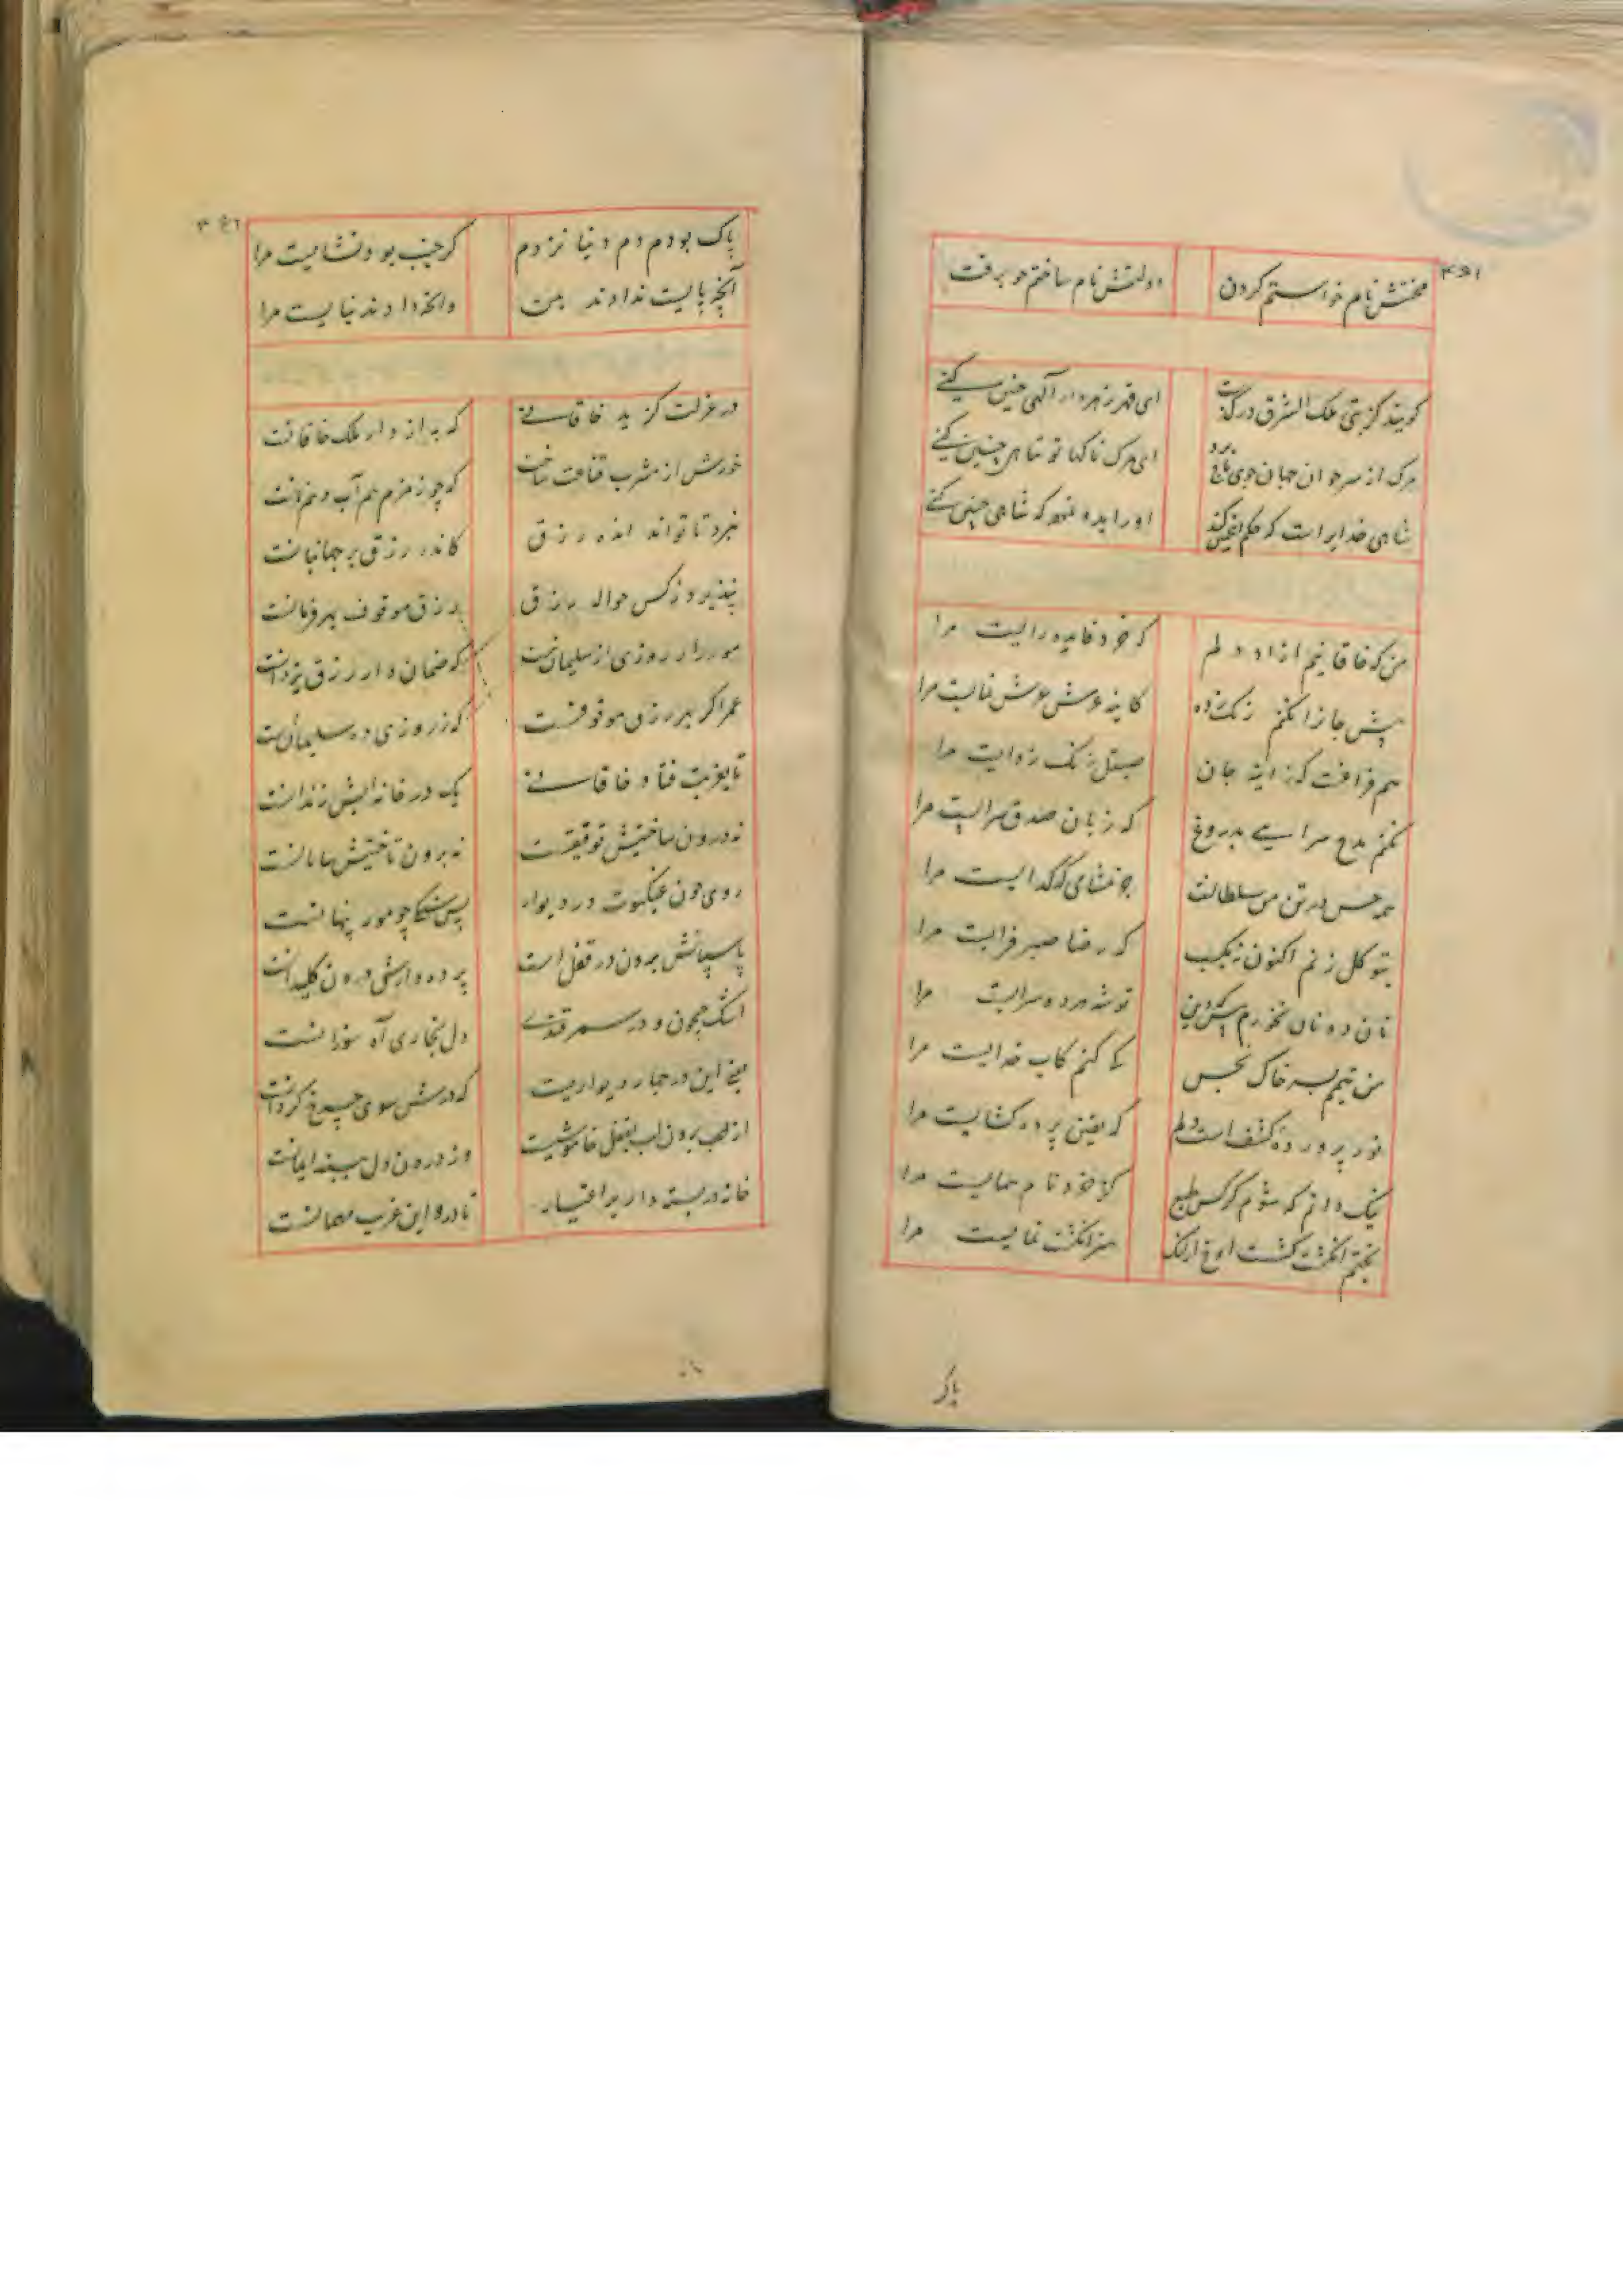 محنتش نام خواستم کردن دولتش نام ساختم چو برفت
کویند کز تبتی ملک الشرق درگذشت ای قهر زهردار الهی چنین کنی
مرک از سر جوان جهان جوی تاج برد ای مرک ناکهان تو تباهی چنین کنی
شاهی خدایراست که حکم اینچنین کند او را بده که شاهی چنین کنی
من که خاقانیم ازاد دلم که خرد قایده رایست مرا
پیش جانرا نکنم زنک زده کاینه عرش نمایست مرا
هم فراغت که ز اینه جان صیقل زنک زدایست مرا
نکنم مدح سرایی بدروغ که زبان صدق سرایست مرا
هر حس در تن من سلطانست چه نشای که کدایست مرا
بتوکل زنم اکنون نه بکسب که رضا صبر فزایست مرا
نان دونان نخورم پیش که دین توشه هر دو سرایست مرا
من تیمم بسر خاک نجس کی کنم کاب خدایست مرا
نور پرورده کشف است دلم که یقین پرده کشایست مرا
نیک دانم که شوم کرکس طبع کز خرد نام همایست مرا
بختم انکشت کشست اوخ ازانک هنر انکشت نمایست مرا
پاک
پاک بودم دم دنیا نزدم کر جنب بود نشایست مرا
آنچه بایست ندادند بمن وانچه دادند نبایست مرا
در عزلت کزید خاقانی که به از دار ملک خاقانست
خورش از مشرب قناعت ساخت که چو زمزم هم آب و هم نانست
نبرد تا تواند انده رزق کانده رزق بر جهانبانست
نپذیرد ز کس حواله رزق رزق موقوف بهر فرمانست
مور را روزی از سلیمان نیست که ضمان دار رزق یزدانست
عمر اکر بهر رزق موقوفست که ز روزی ده سلیمانست
تا بغربت فتاد خاقانی یک در خانه ایش زندانست
نه درون ساختنش توفیقست نه برون تاختنش سامانست
روی چون عنکبوت در دیوار پس چو مور پنهانست
پاسبانش برون در قفل است پرده دارش درون کلیدانست
اشک جیحون و دم سمرقندی دل بخاری آه سوزانست
یعنی این در چهار دیواریست که درش سوی چرخ کردانست
از لب برون لب بقفل خاموشیست وز درون دل ببند ایمانست
خانه دربسته دار بر اغیار تا درو این غریب مهمانست